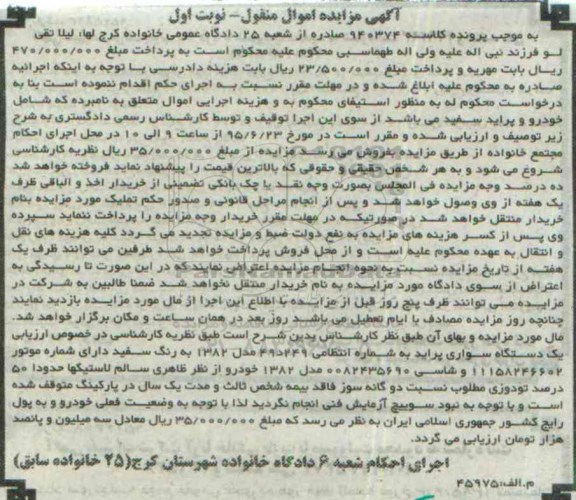 آگهی مزایده اموال منقول - نوبت اول
به موجب پرونده کلاسه ۹۴۰۳۷۴ صادره از شعبه ۲۵ دادگاه عمومی خانواده کرج لها: لیلا تقی
لو فرزند نبی اله علیه ولی اله طهماسبی محکوم علیه محکوم است به پرداخت مبلغ ۴۷۰/۰۰۰/۰۰۰
ریال بابت مهریه و پرداخت مبلغ ۲۳/۵۰۰/۰۰۰ ریال بابت هزینه دادرسی با توجه به اینکه اجرائیه
صادره به محکوم علیه ابلاغ شده و در مهلت مقرر نسبت به اجرای حکم اقدام ننموده است بنا به
درخواست محکوم له به منظور استیفای محکوم به و هزینه اجرایی اموال متعلق به نامبرده که شامل
خودرو و پراید سفید می باشد از سوی این اجرا توقیف و توسط کارشناس رسمی دادگستری به شرح
زیر توصیف و ارزیابی شده و مقرر است در مورخ ۹۵/۶/۲۳ از ساعت ۹ الی ۱۰ در محل اجرای احکام
مجتمع خانواده از طریق مزایده بفروش می رسد مزایده از مبلغ ۳۵/۰۰۰/۰۰۰ ریال نظریه کارشناسی
شروع می شود و به هر شخص حقیقی و حقوقی که بالاترین قیمت را پیشنهاد نماید فروخته خواهد شد
ده درصد وجه مزایده فی المجلس بصورت وجه نقد یا چک بانکی تضمینی از خریدار اخذ و الباقی ظرف
یک هفته از وی وصول خواهد شد و پس از انجام مراحل قانونی و صدور حکم تملیک مورد مزایده بنام
خریدار منتقل خواهد شد در صورتیکه در مهلت مقرر خریدار وجه مزایده را پرداخت ننماید سپرده
وی پس از کسر هزینه های مزایده به نفع دولت ضبط و مزایده تجدید می گردد کلیه هزینه های نقل
و انتقال به عهده محکوم علیه است و از محل فروش پرداخت خواهد شد طرفین می توانند ظرف یک
هفته از تاریخ مزایده نسبت به نحوه انجام مزایده اعتراض نمایند که در این صورت تا رسیدگی به
اعتراض از سوی دادگاه مورد مزایده به نام خریدار منتقل نخواهد شد ضمنا طالبین به شرکت در
مزایده می توانند ظرف پنج روز قبل از مزایده با اطلاع این اجرا از مال مورد مزایده بازدید نمایند
چنانچه روز مزایده مصادف با ایام تعطیل می باشد روز بعد در همان ساعت و مکان برگزار خواهد شد.
مال مورد مزایده و بهای آن طبق نظر کارشناس بدین شرح است طبق نظریه کارشناسی در خصوص ارزیابی
یک دستگاه سواری پراید به شماره انتظامی ۴۴۹د۴۹ مدل ۱۳۸۲ به رنگ سفید دارای شماره موتور
۱۱۱۵۸۲۴۶۶۰۲ و شاسی ۰۰۸۲۴۳۵۶۹۰ مدل ۱۳۸۲ خودرو از نظر ظاهری سالم لاستیکها حدودا ۵۰
درصد تودوزی مطلوب نسبت دو گانه سوز فاقد بیمه شخص ثالث و مدت یک سال در پارکینگ متوقف شده
است و با توجه به نبود سوییچ آزمایش فنی انجام نگردید لذا با توجه به وضعیت فعلی خودرو و به پول
رایج کشور جمهوری اسلامی ایران به نظر می رسد که مبلغ ۳۵/۰۰۰/۰۰۰ ریال معادل سه میلیون و پانصد
هزار تومان ارزیابی می گردد.
اجرای احکام شعبه ۶ دادگاه خانواده شهرستان کرج (۲۵ خانواده سابق)
م.الف: ۴۵۹۷۵